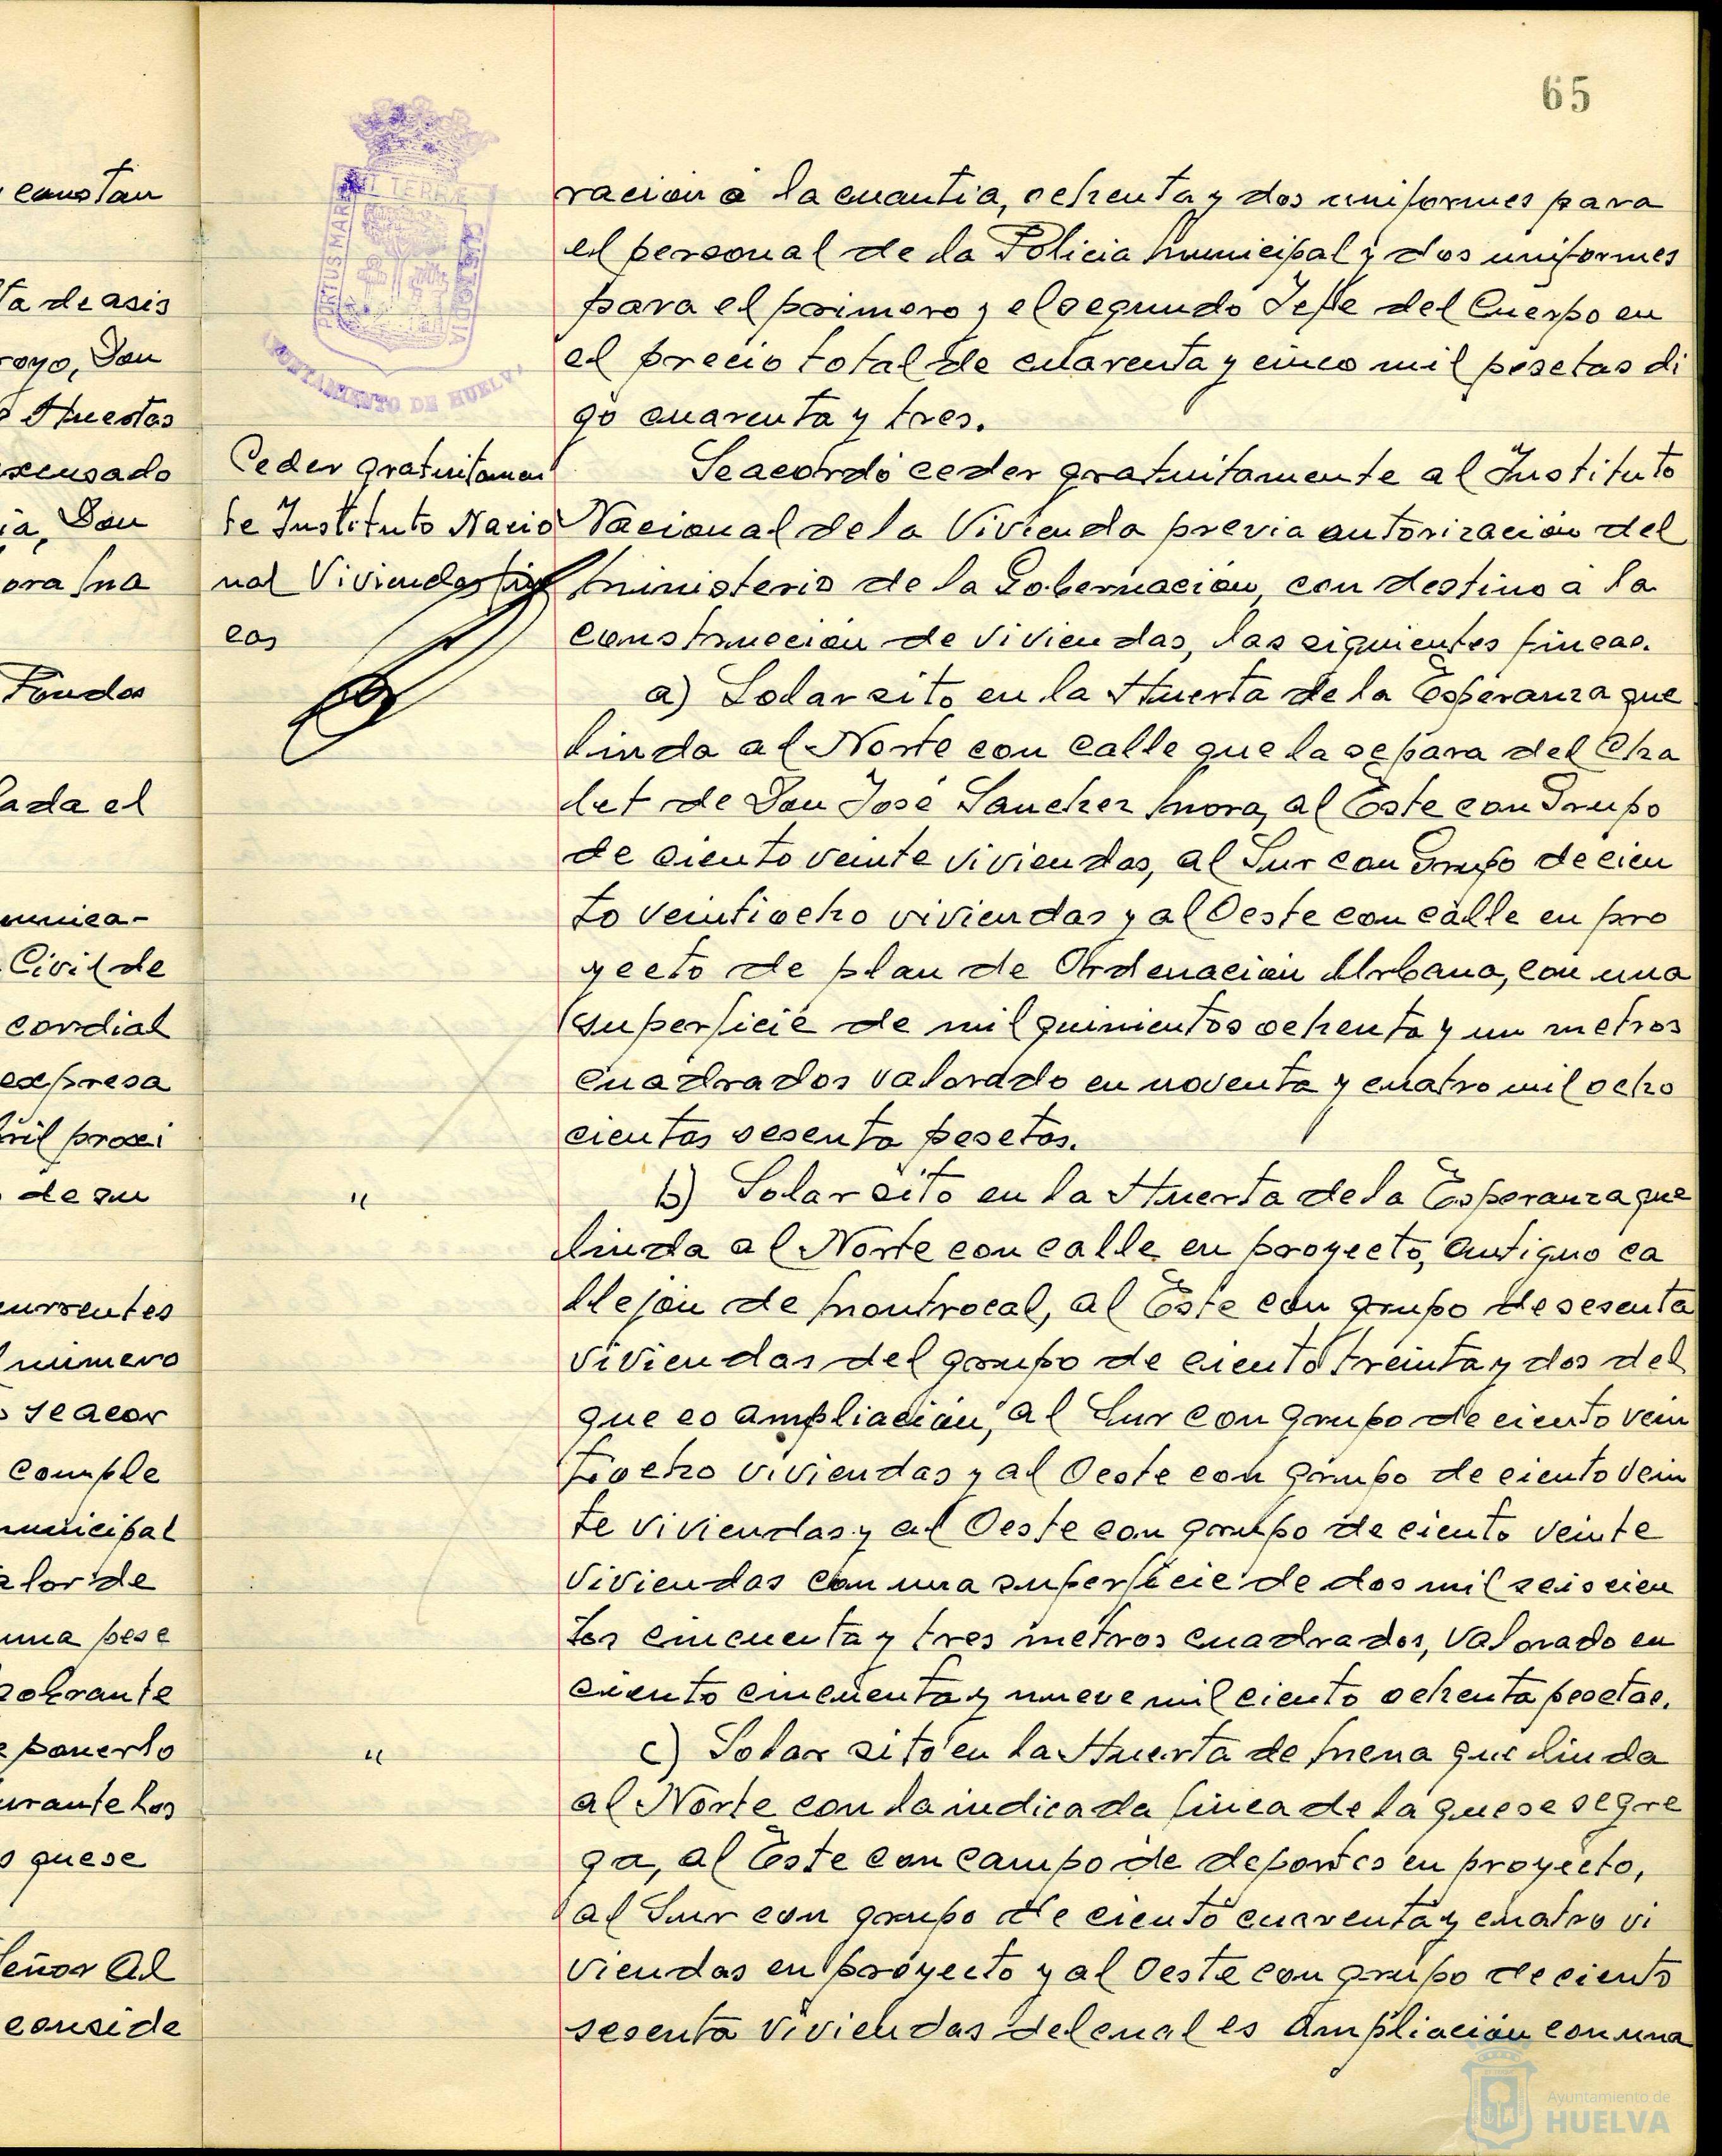 65
constan
ta de asis
royo, Don
Huestas
xcusado
ia, Don
ora
Fondos
lada el
munica-
Civil de
cordial
expresa
bril proxi
de su
currentes
numero
se acor
comple
municipal
valor de
una pese
sobrante
e ponerlo
urante los
o que se
Señor Al
conside
PORTUS MARIS ET TERRÆ CUSTODIA
AYUNTAMIENTO DE HUELVA
Ceder gratuitamen
te Instituto Nacio
nal Viviendas fin
cas
"
"
racion á la cuantia, ochenta y dos uniformes para
el personal de la Policia Municipal y dos uniformes
para el primero y el segundo Jefe del Cuerpo en
el precio total de cuarenta y cinco mil pesetas di
go cuarenta y tres.
Se acordó ceder gratuitamente al Instituto
Nacional de la Vivienda previa autorización del
Ministerio de la Gobernación, con destino a la
construcción de viviendas, las siguientes fincas.
a) Solar sito en la Huerta de la Esperanza que
linda al Norte con calle que la separa del Cha
let de Don José Sanchez Mora, al Este con Grupo
de ciento veinte viviendas, al Sur con Grupo de cien
to veintiocho viviendas y al Oeste con calle en pro
yecto de plan de Ordenación Urbana, con una
superficie de mil quinientos ochenta y un metros
cuadrados valorado en noventa y cuatro mil ocho
cientas sesenta pesetas.
b) Solar sito en la Huerta de la Esperanza que
linda al Norte con calle en proyecto, antiguo ca
llejón de Montrocal, al Este con grupo de sesenta
viviendas del grupo de ciento treinta y dos del
que es ampliación, al Sur con grupo de ciento vein
tiocho viviendas y al Oeste con grupo de ciento vein
te viviendas y al Oeste con grupo de ciento veinte
viviendas con una superficie de dos mil seiscien
tos cincuenta y tres metros cuadrados, valorado en
ciento cincuenta y nueve mil ciento ochenta pesetas.
c) Solar sito en la Huerta de Mena que linda
al Norte con la indicada finca de la que se segre
ga, al Este con campo de deportes en proyecto,
al Sur con grupo de ciento cuarenta y cuatro vi
viendas en proyecto y al Oeste con grupo de ciento
sesenta viviendas del cual es ampliación con una
Ayuntamiento de
HUELVA